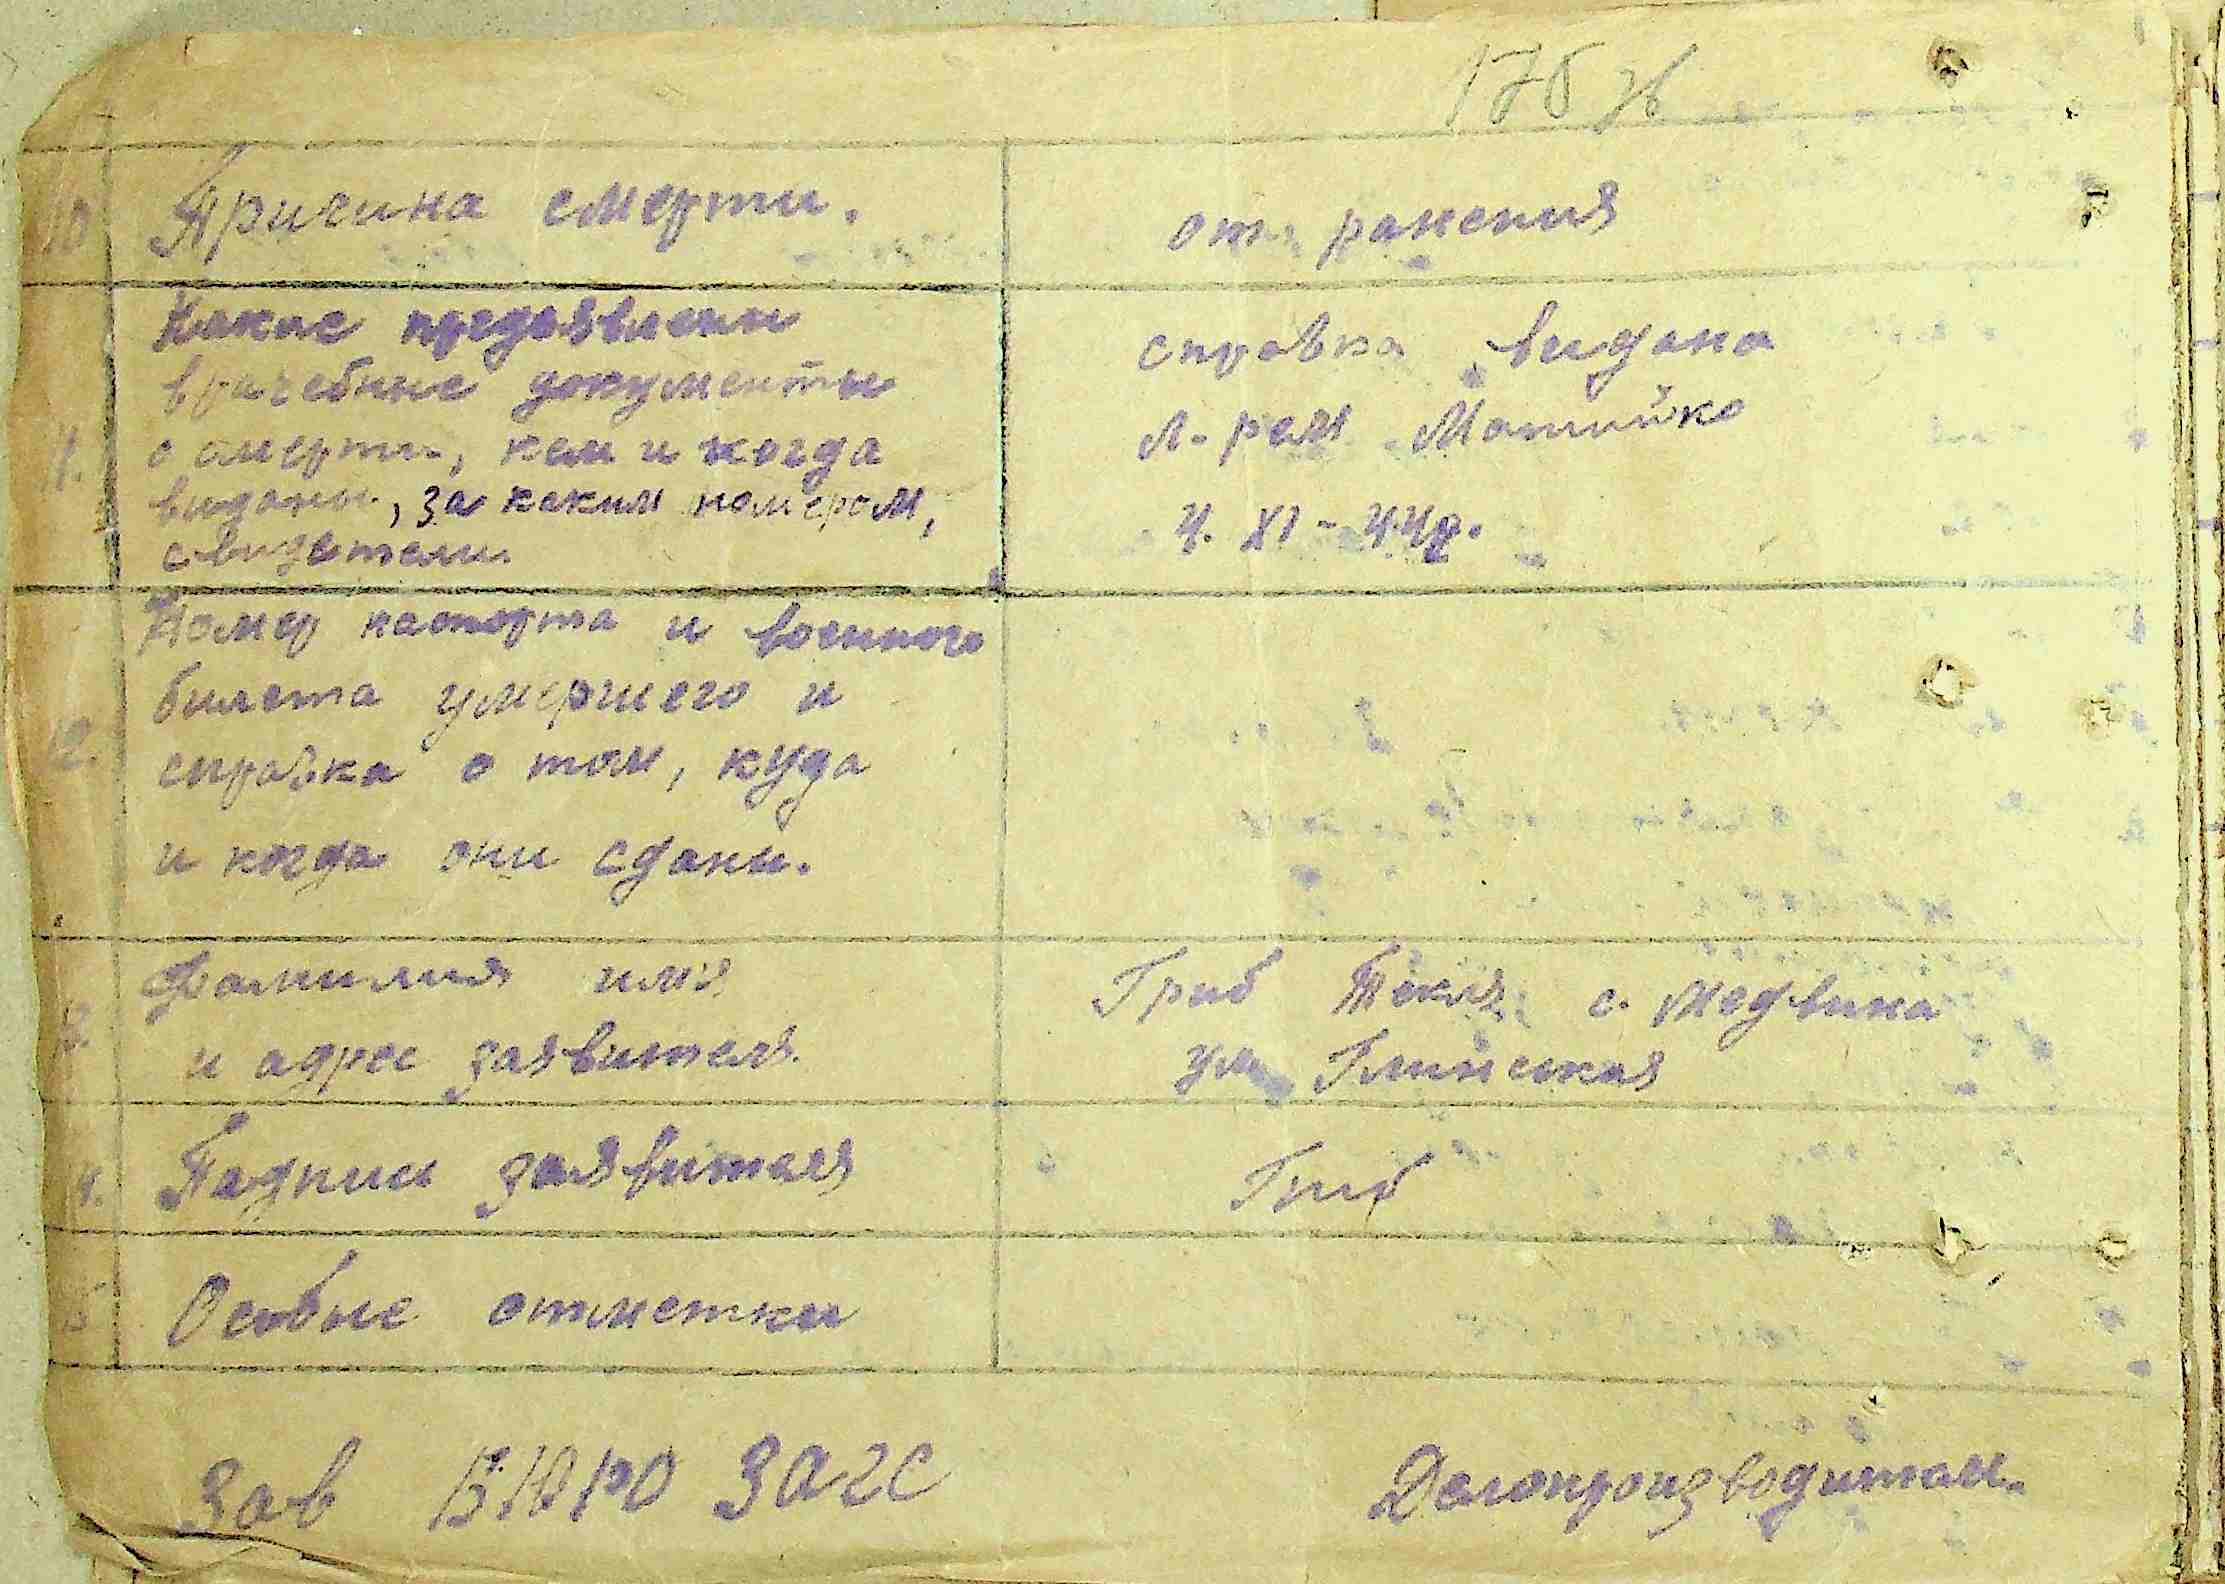 176 зв
10 Причина смерти.
от ранения
11. Какие предъявлены
врачебные документы
о смерти, кем и когда
виданы, за каким номером,
свидетели
справка видана
л-рем Матийко
4. XI - 44г.
12. Номер паспорта и военного
билета умершего и
справка о том, куда
и когда они сданы.
3. Фамилия имя
и адрес заявителя.
Гриб Текля с. Медвина
ул Глинская
4. Падпись заявителя
Гриб
15 Особые отметки
Зав БЮРО ЗАГС
Делопроизводитель.